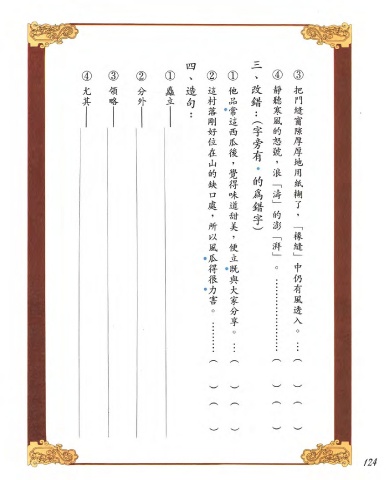 ③把門縫窗隙厚厚地用紙糊了，「櫞縫」中仍有風透入。…（　）（　）
④靜聽寒風的怒號，浪「濤」的澎「湃」。…………（　）（　）
三、改錯：（字旁有•的為錯字）
①他品當這西瓜後，覺得味道甜美，便立既與大家分享。…（　）（　）
②這村落剛好位在山的缺口處，所以風瓜得很力害。………（　）（　）
四、造句：
①矗立——
②分外——
③領略——
④尤其——
124